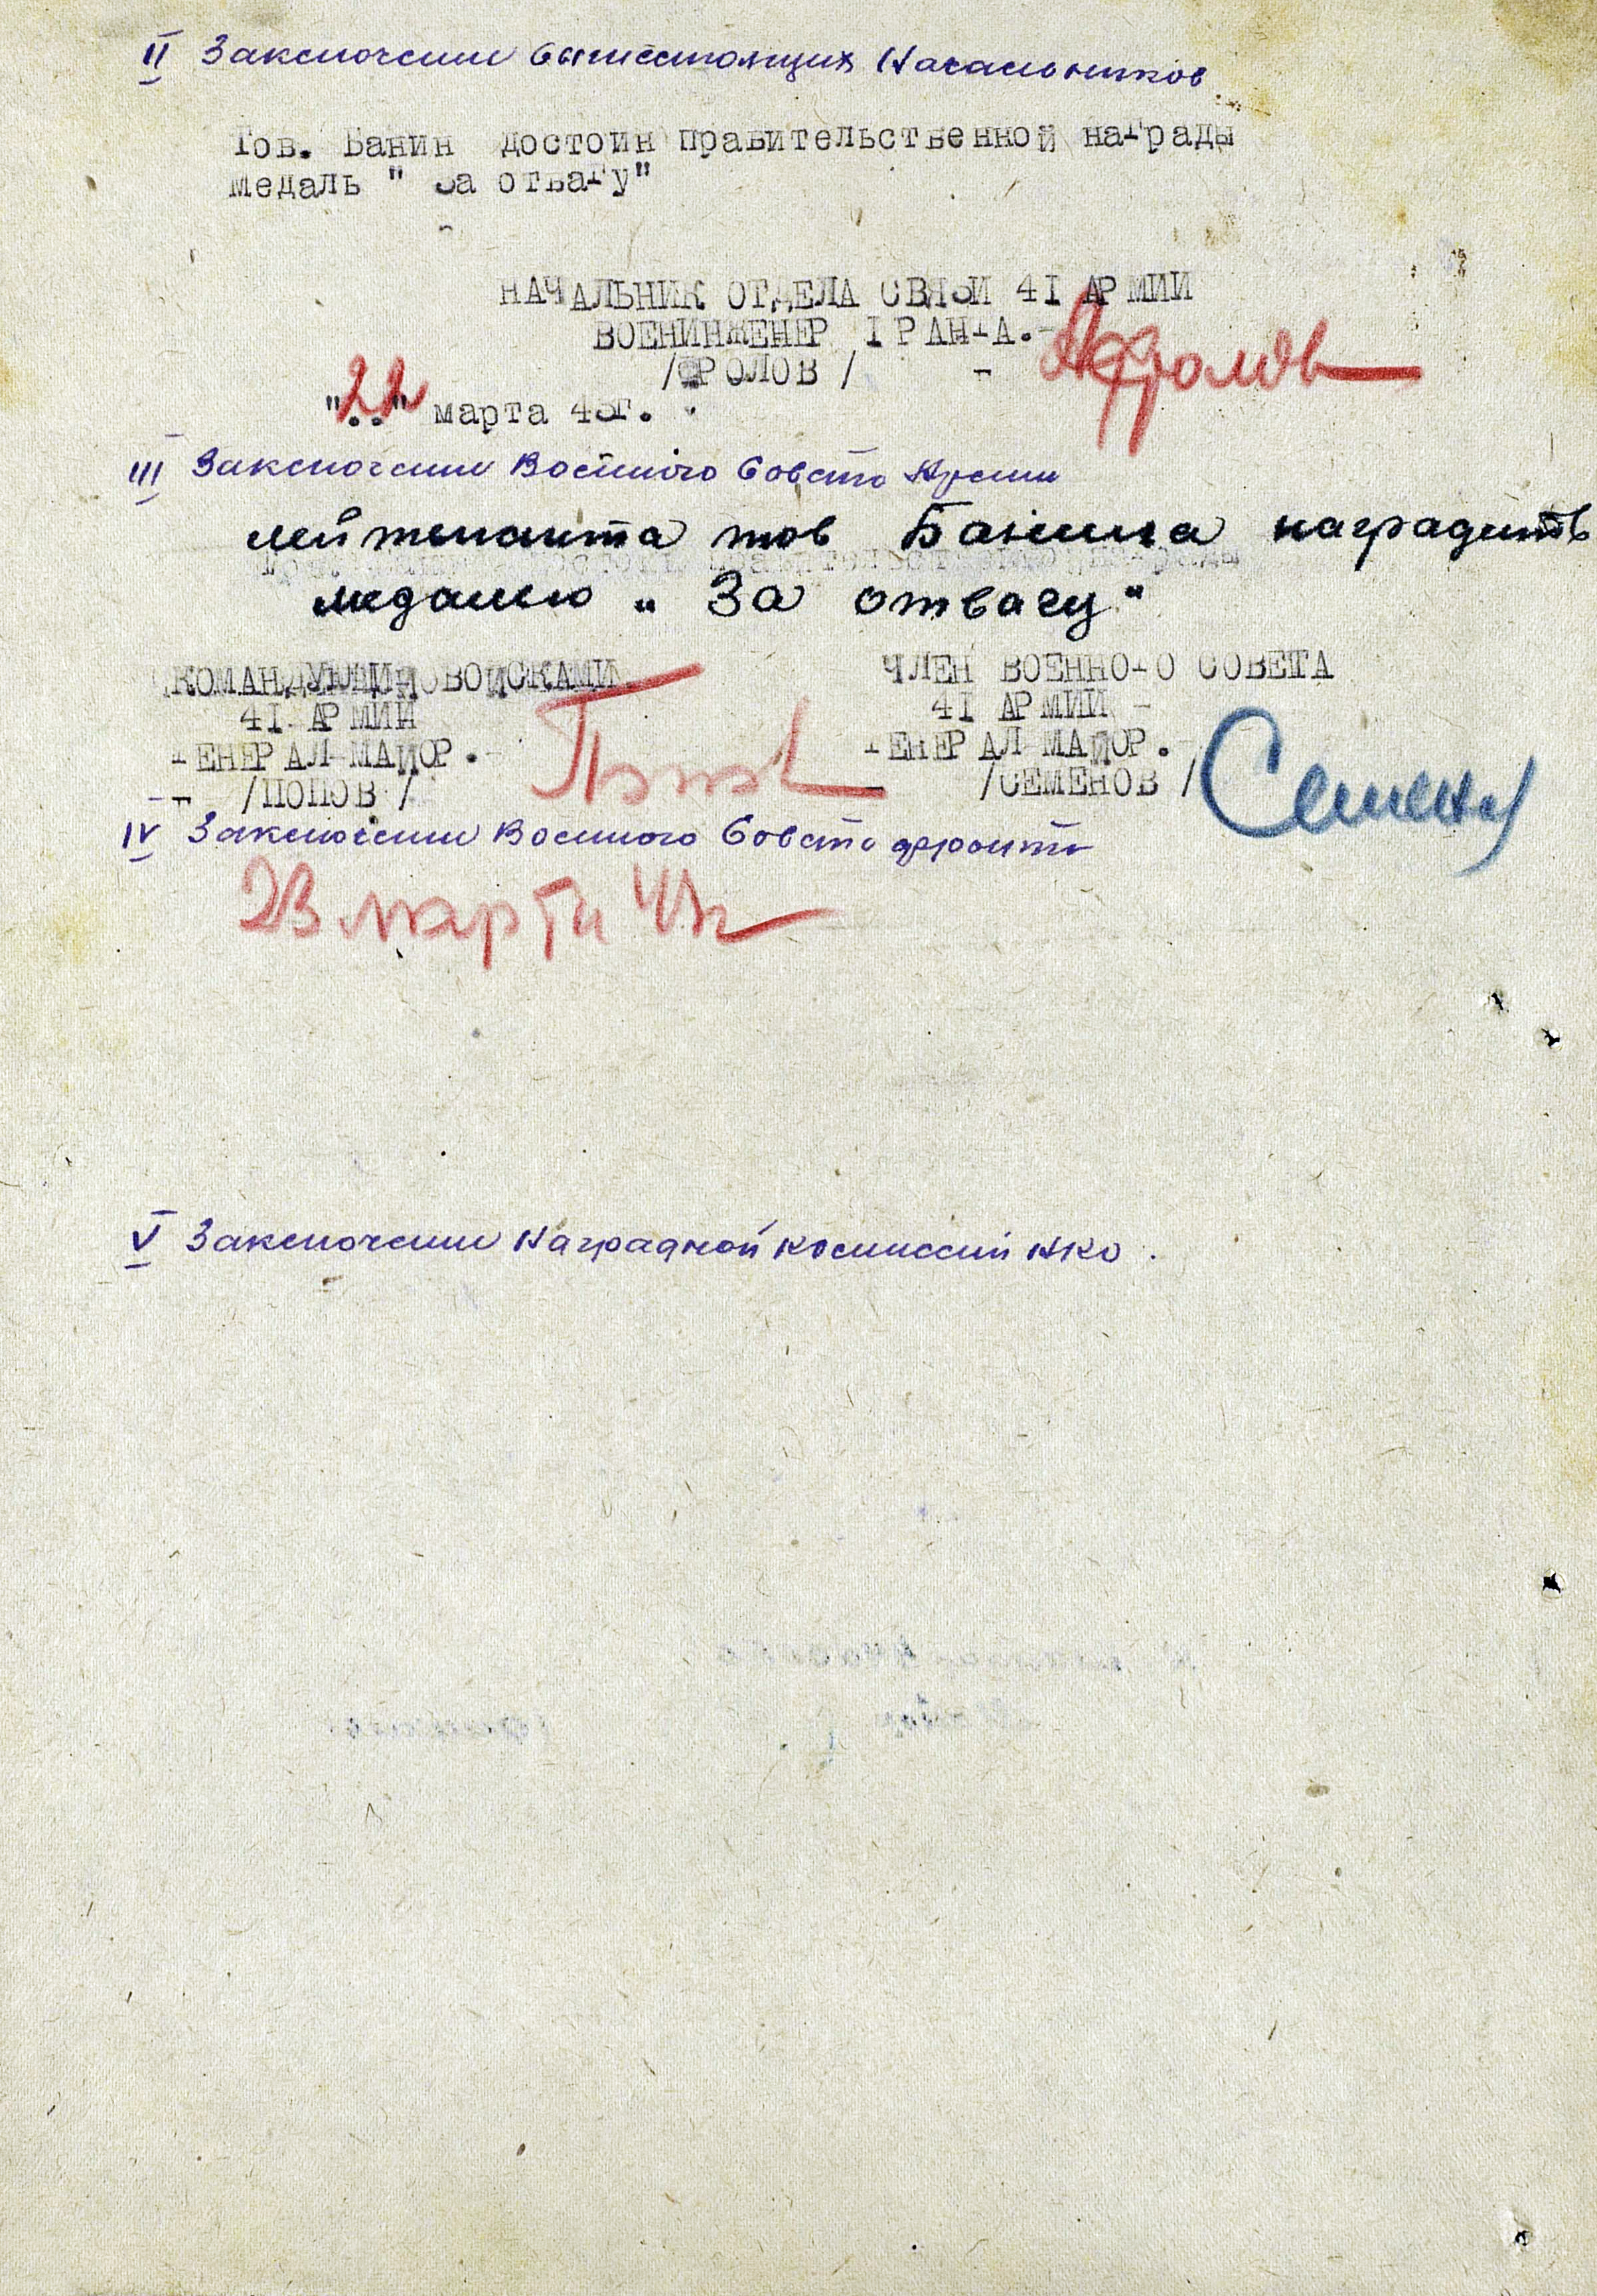 II Заключение вышестоящих Начальников
Тов. Банин достоин правительственной награды
медаль "За отвагу"
НАЧАЛЬНИК ОТДЕЛА СВЯЗИ 4I АРМИИ
ВОЕНИНЖЕНЕР I РАНГА.-
/ФРОЛОВ/
Фролов
"22" марта 43г.
III Заключение Военного Совета Армии
лейтенанта тов Банина наградить
медалью „За отвагу"
КОМАНДУЮЩИЙ ВОЙСКАМИ
4I АРМИИ
ГЕНЕРАЛ-МАЙОР.-
/ПОПОВ/
Попов
ЧЛЕН ВОЕННОГО СОВЕТА
4I АРМИИ -
ГЕНЕРАЛ-МАЙОР.
/СЕМЕНОВ/
Семенов
IV Заключение Военного Совета фронта
23 марта
V Заключение Наградной комиссии НКО.